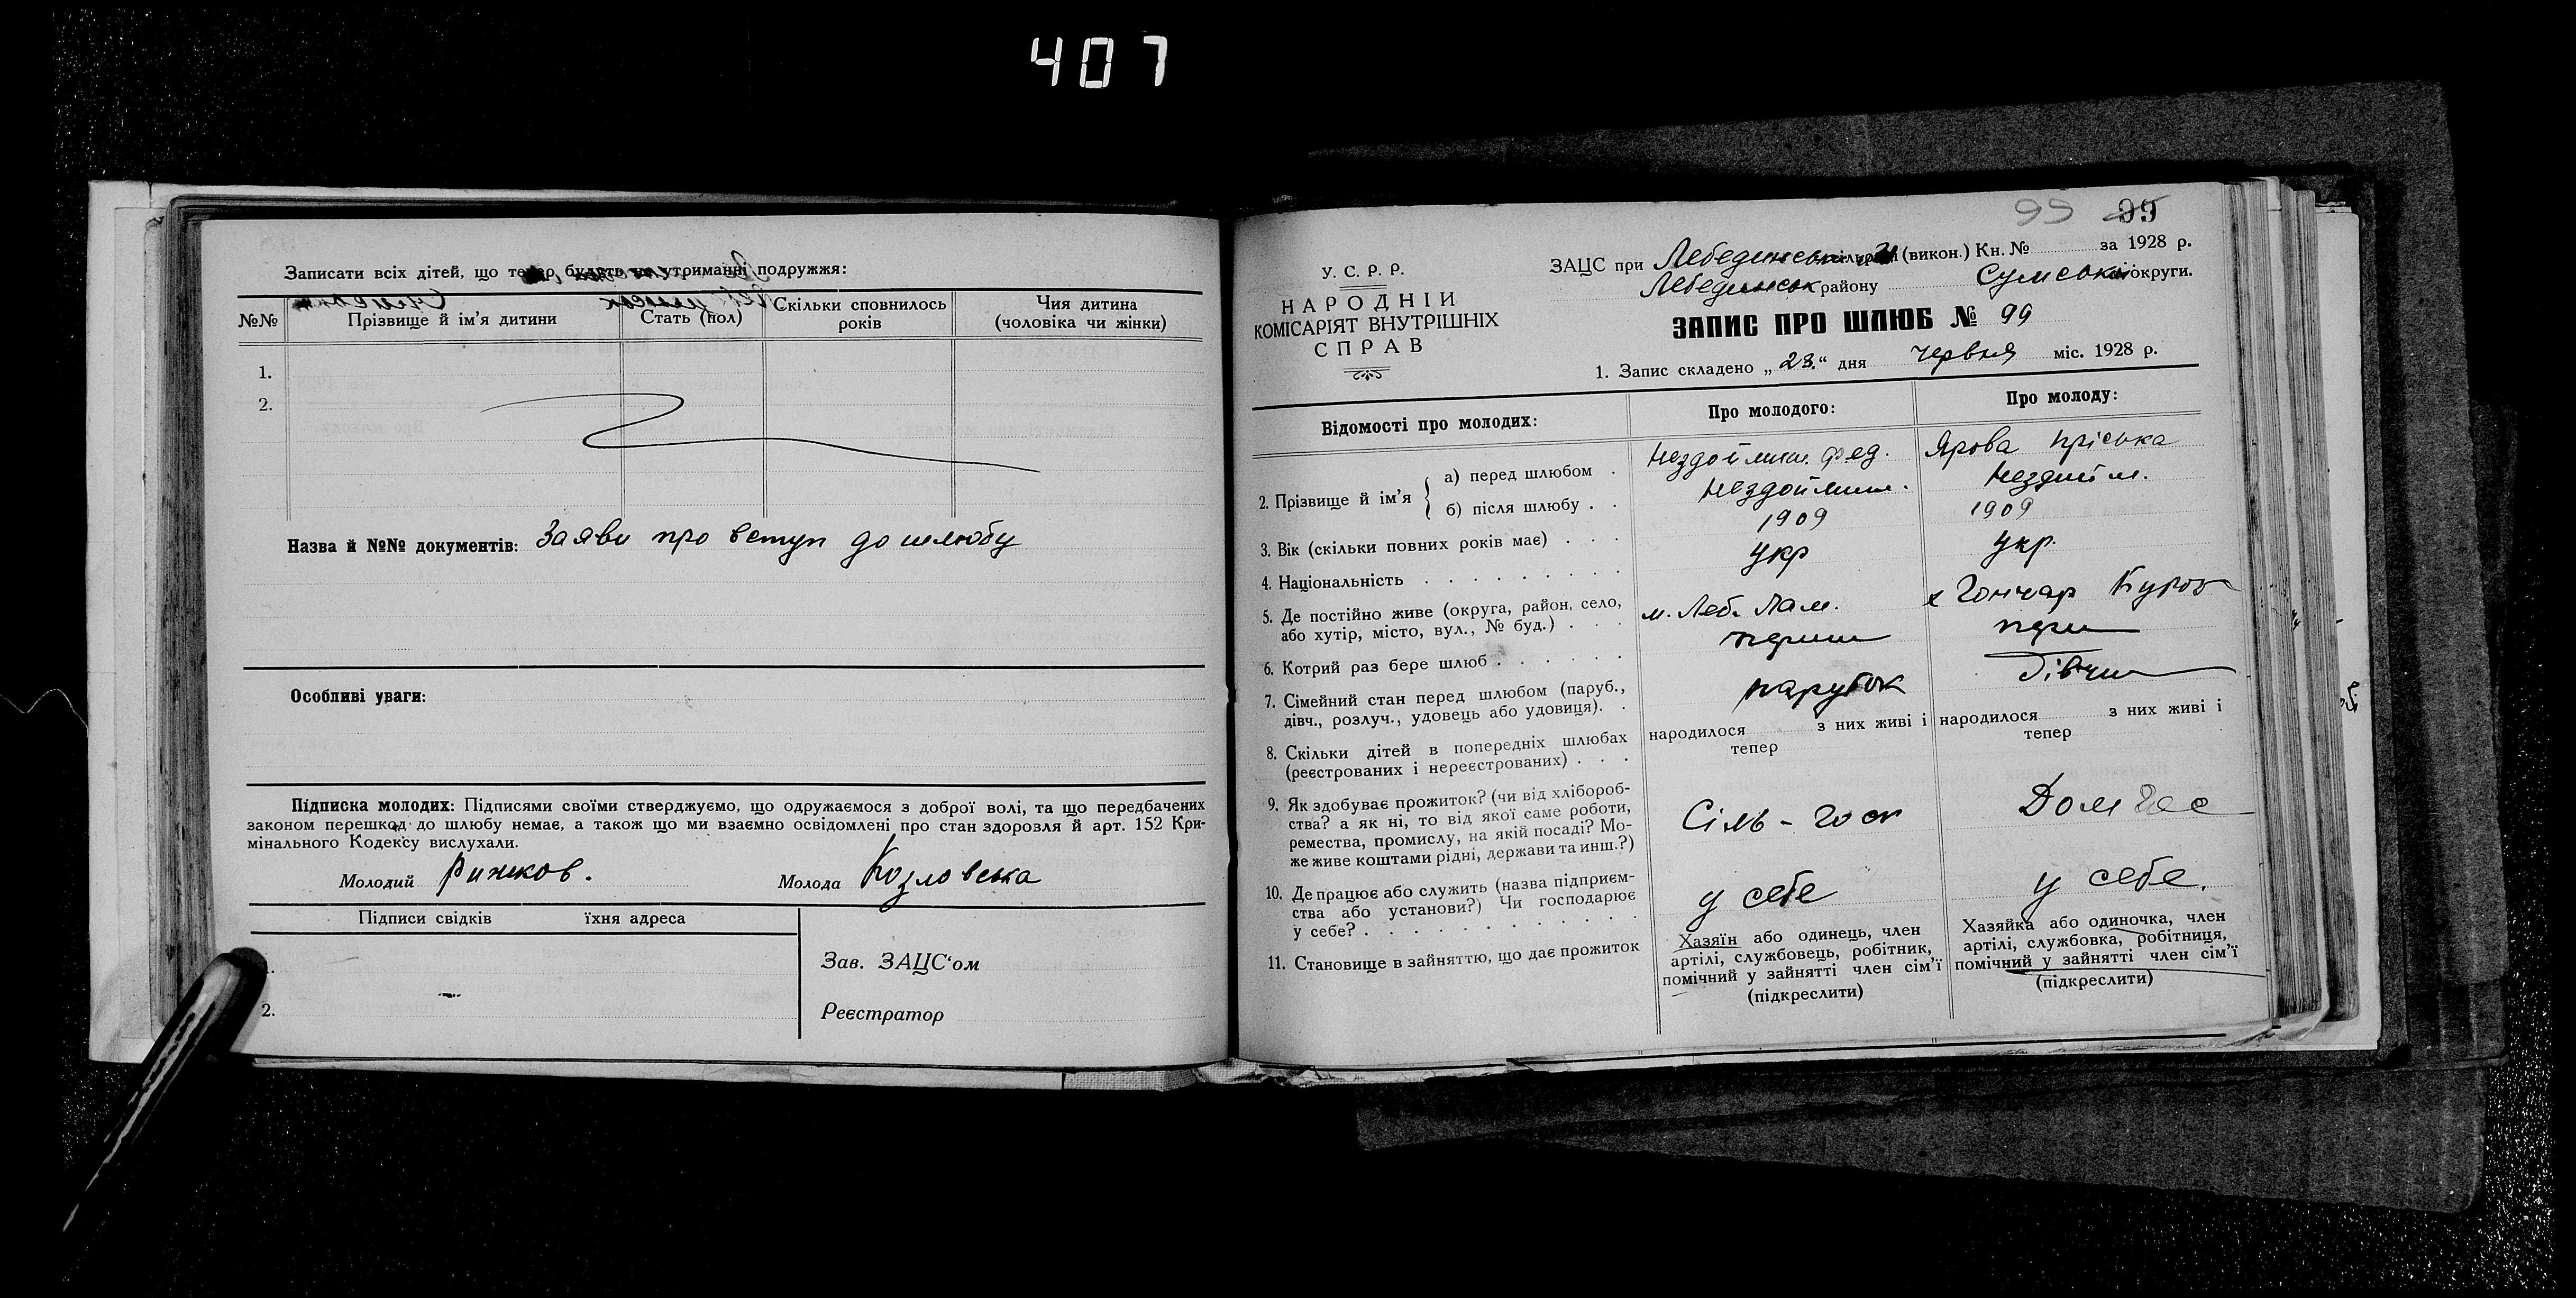 407
Записати всіх дітей, що тепер будуть на утриманні подружжя:
№№ Прізвище й ім'я дитини Стать (пол) Скільки сповнилось років Чия дитина (чоловіка чи жінки)
1.
2.
Назва й №№ документів: Заяви про вступ до шлюбу
Особливі уваги:
Підписка молодих: Підписями своїми стверджуємо, що одружаємося з доброї волі, та що передбачених
законом перешкод до шлюбу немає, а також що ми взаємно освідомлені про стан здоровля й арт. 152 Кри-
мінального Кодексу вислухали.
Молодий Рижков. Молода Козловська
Підписи свідків їхня адреса
1.
2.
Зав. ЗАЦС'ом
Реєстратор
99 99
У. С. Р. Р.
НАРОДНІЙ
КОМІСАРІЯТ ВНУТРІШНІХ
СПРАВ
ЗАЦС при Лебединськ (викон.) Кн. № за 1928 р.
Лебединськ району Сумської округи.
ЗАПИС ПРО ШЛЮБ № 99
1. Запис складено „23“ дня червня міс. 1928 р.
Відомості про молодих: Про молодого: Про молоду:
2. Прізвище й ім'я
а) перед шлюбом . Нездоймин. Фед. Ярова Пріська
б) після шлюбу . . Нездоймин. Нездойм.
3. Вік (скільки повних років має) . . . 1909 1909
4. Національність . . . . . . . . . укр укр.
5. Де постійно живе (округа, район, село,
або хутір, місто, вул., № буд.) . . . м. Леб. Лам. х Гончар
6. Котрий раз бере шлюб . . . . . . перши перш
7. Сімейний стан перед шлюбом (паруб.,
дівч., розлуч., удовець або удовиця). . парубок дівчи
8. Скільки дітей в попередніх шлюбах
(реєстрованих і нереєстрованих) . . .
народилося з них живі і
тепер
народилося з них живі і
тепер
9. Як здобуває прожиток? (чи від хлібороб-
ства? а як ні, то від якої саме роботи,
ремества, промислу, на якій посаді? Мо-
же живе коштами рідні, держави та инш.?)
Сіль-госп Дом гос
10. Де працює або служить (назва підприєм-
ства або установи?) Чи господарює
у себе? . . . . . . . . . . . .
у себе у себе.
11. Становище в зайняттю, що дає прожиток
Хазяїн або одинець, член
артілі, службовець, робітник,
помічний у зайнятті член сім'ї
(підкреслити)
Хазяйка або одиночка, член
артілі, службовка, робітниця,
помічний у зайнятті член сім'ї
(підкреслити)